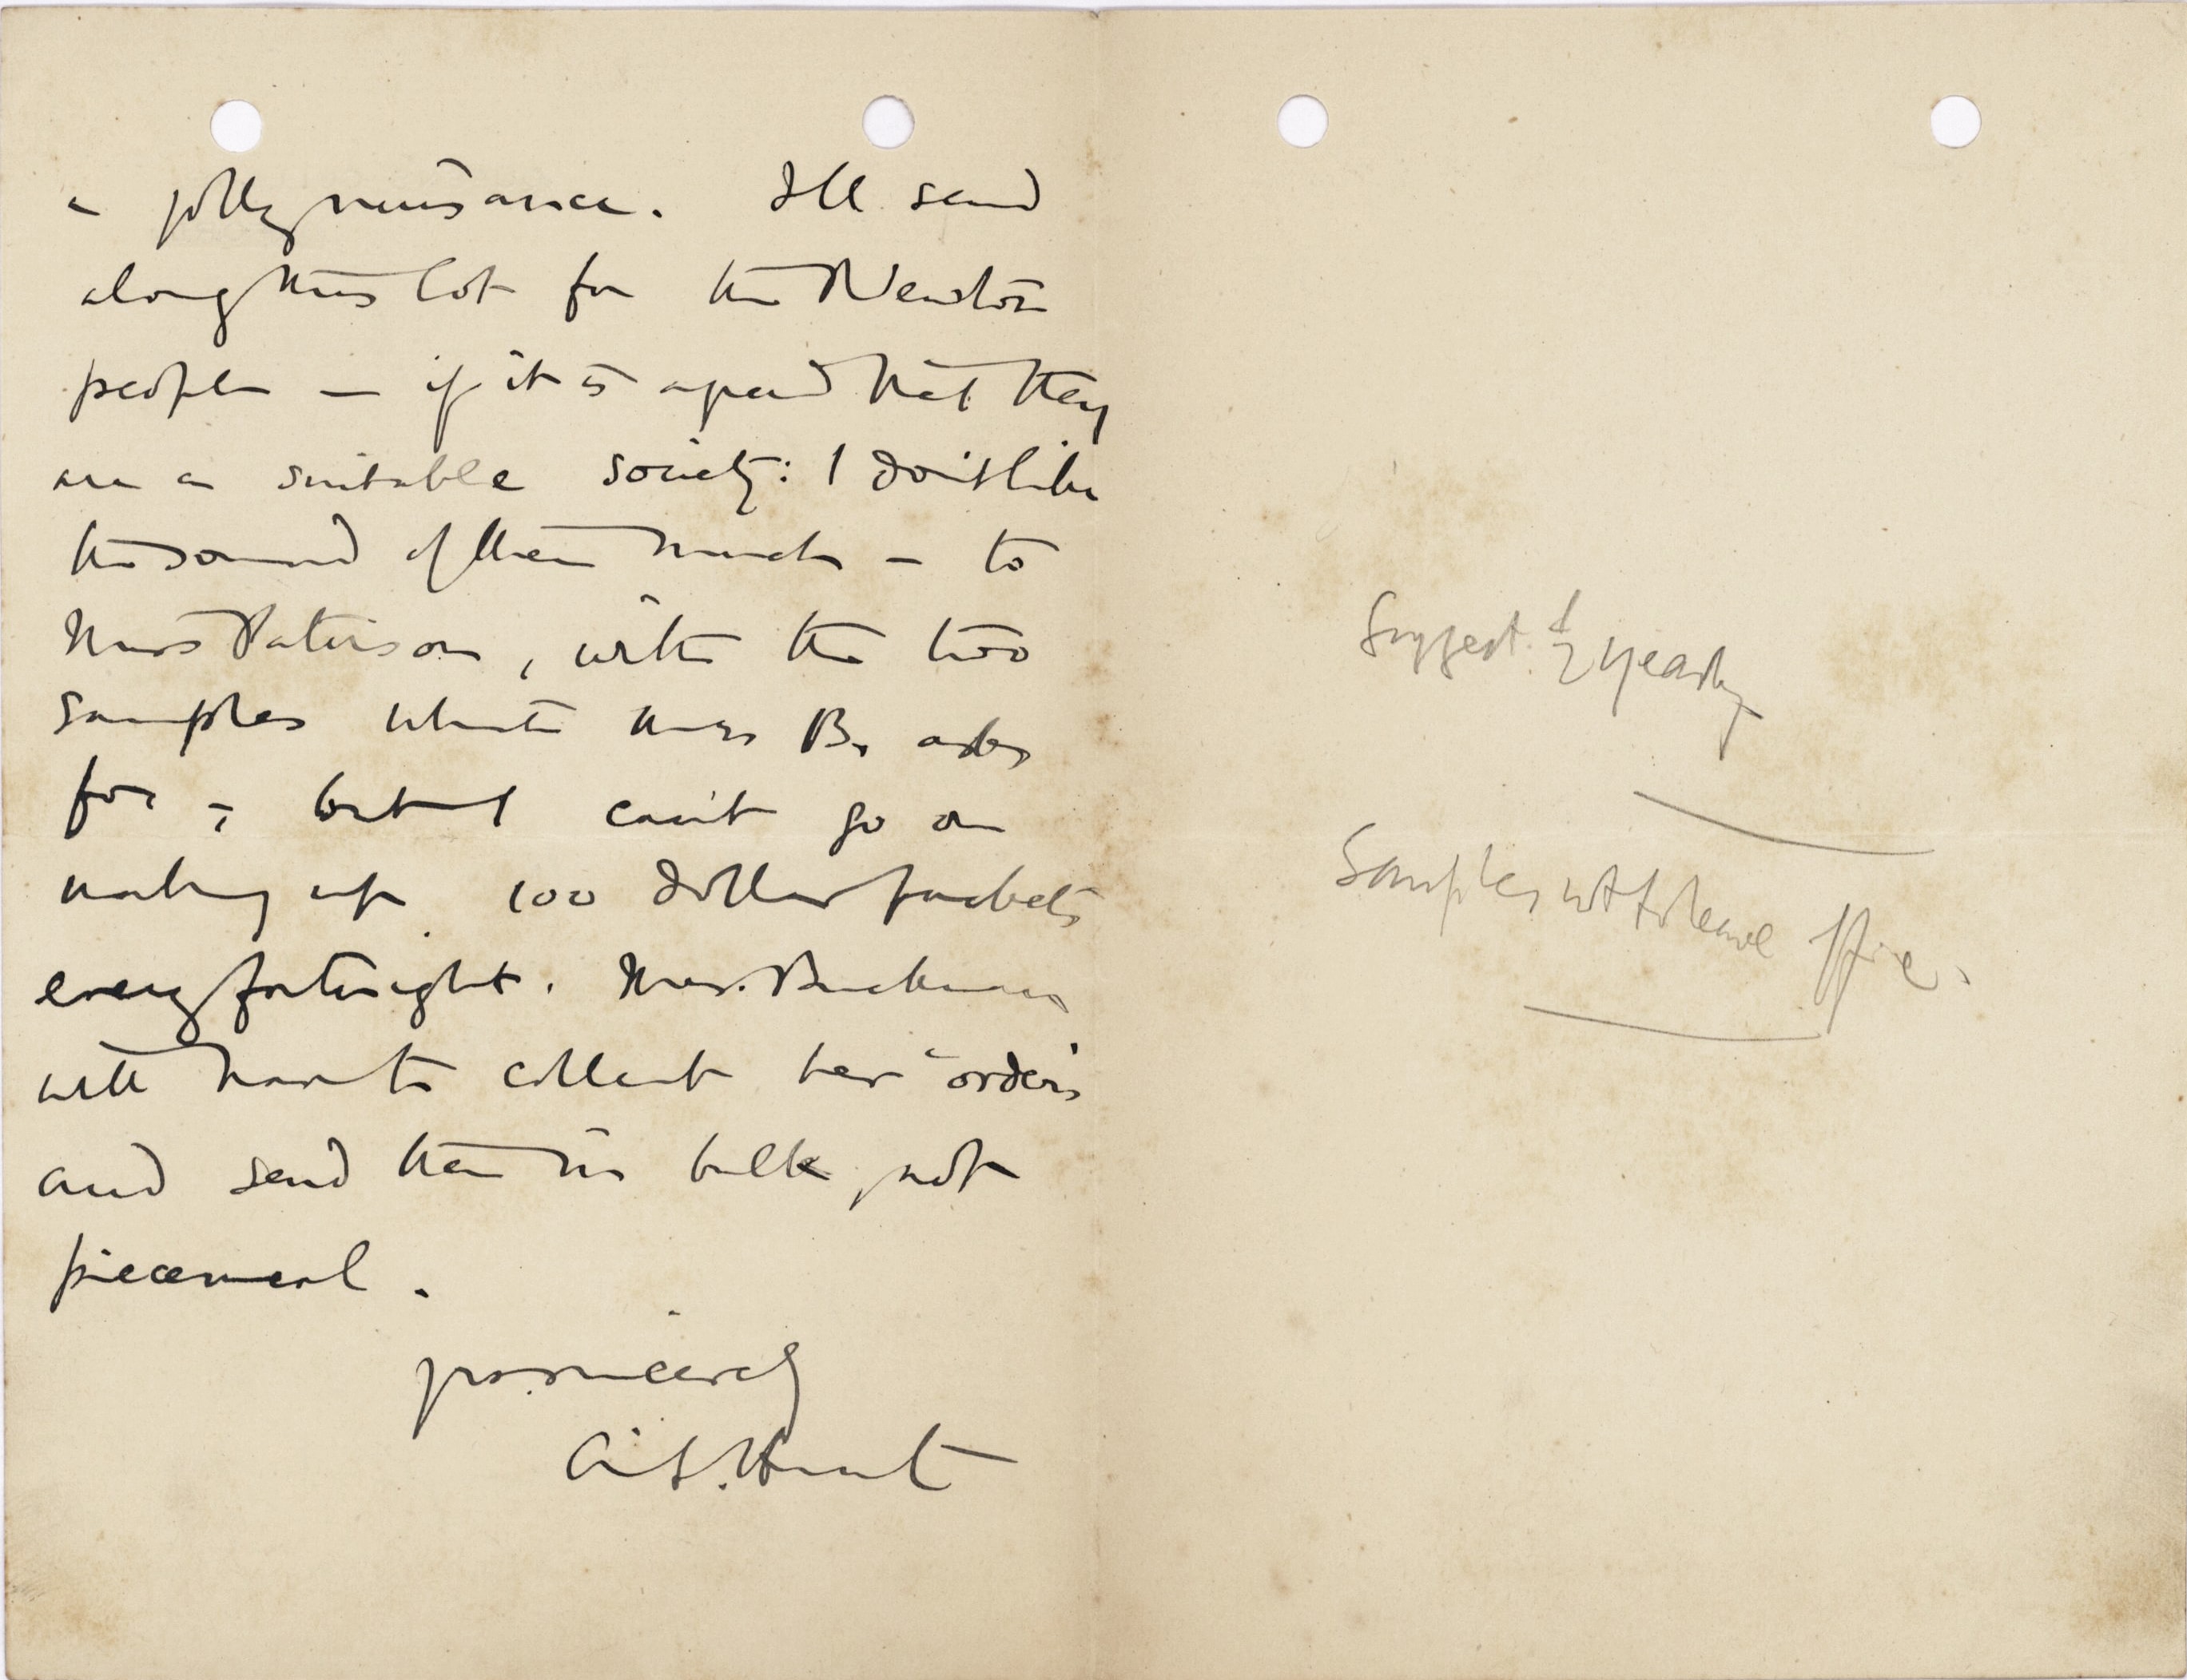 a jolly nuisance. I'll send
along this lot for the Newton
people — if it is agreed that they
are a suitable society: I don't like
the sound of them much — to
Miss Paterson, with the two
samples which Miss B. asks
for; but I can't go on
making up 100 dollar packets
every fortnight. Mrs. Buckman
will have to collect her orders
and send them in bulk, not
piecemeal.
yrs. sincerely
A.S. Hunt
Suggest ½ yearly
Samples not to leave office.